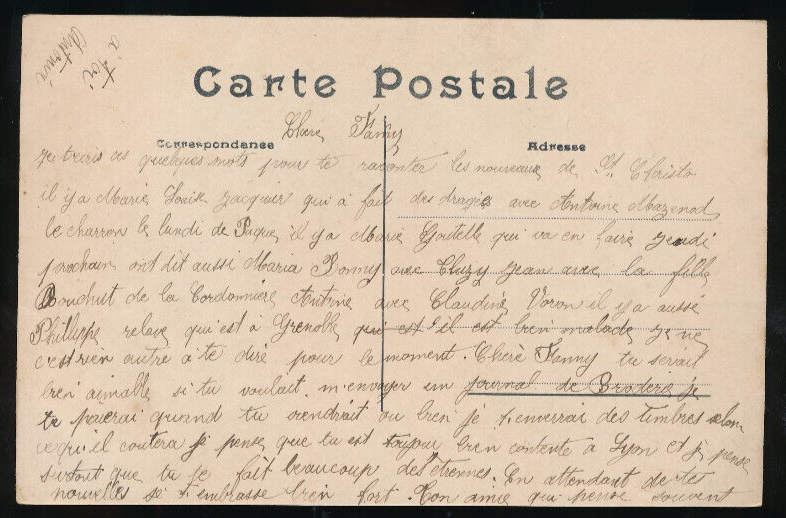 à toi
Antonia
Carte Postale
Correspondance
Adresse
Chère Fanny
Je técris ces quelques mots pour te raconter les nouveaux de St. Christo
il y a Marie Louise Jacquier qui à fait des dragés avec Antoine Mazenod
le charron le lundi de Paque, il y a Marie Goutelle qui va en faire jeudi
prochain ont dit aussi Maria Bonny avec Cluzy Jean avec la fille
Bouchut de la Cordonnière Antoine avec Claudine Voron il y a aussi
Phillippe relave qui est à Grenoble qui est il est bien malade je ne
c'est rien autre à te dire pour le moment. Cherè Fanny tu serait
bien aimable si tu voulait m'envoyer un journal de Broderie je
te paierai quand tu viendrait ou bien je t'enverrai des timbres selon
ce qu'il coutera je pense que tu est toujour bien contente à Lyon et je pense
surtout que tu te fait beaucoup des étrennes. En attendant de tes
nouvelles je t'embrasse bien fort. Ton amie qui pense souvent